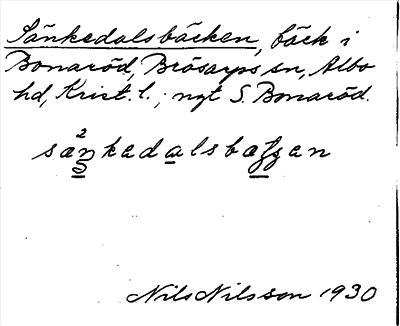 Sänkedalsbäcken, bäck i
Bonaröd, Brösarps sn, Albo
hd, Krist. l.; nyt S. Bonaröd.
Nils Nilsson 1930